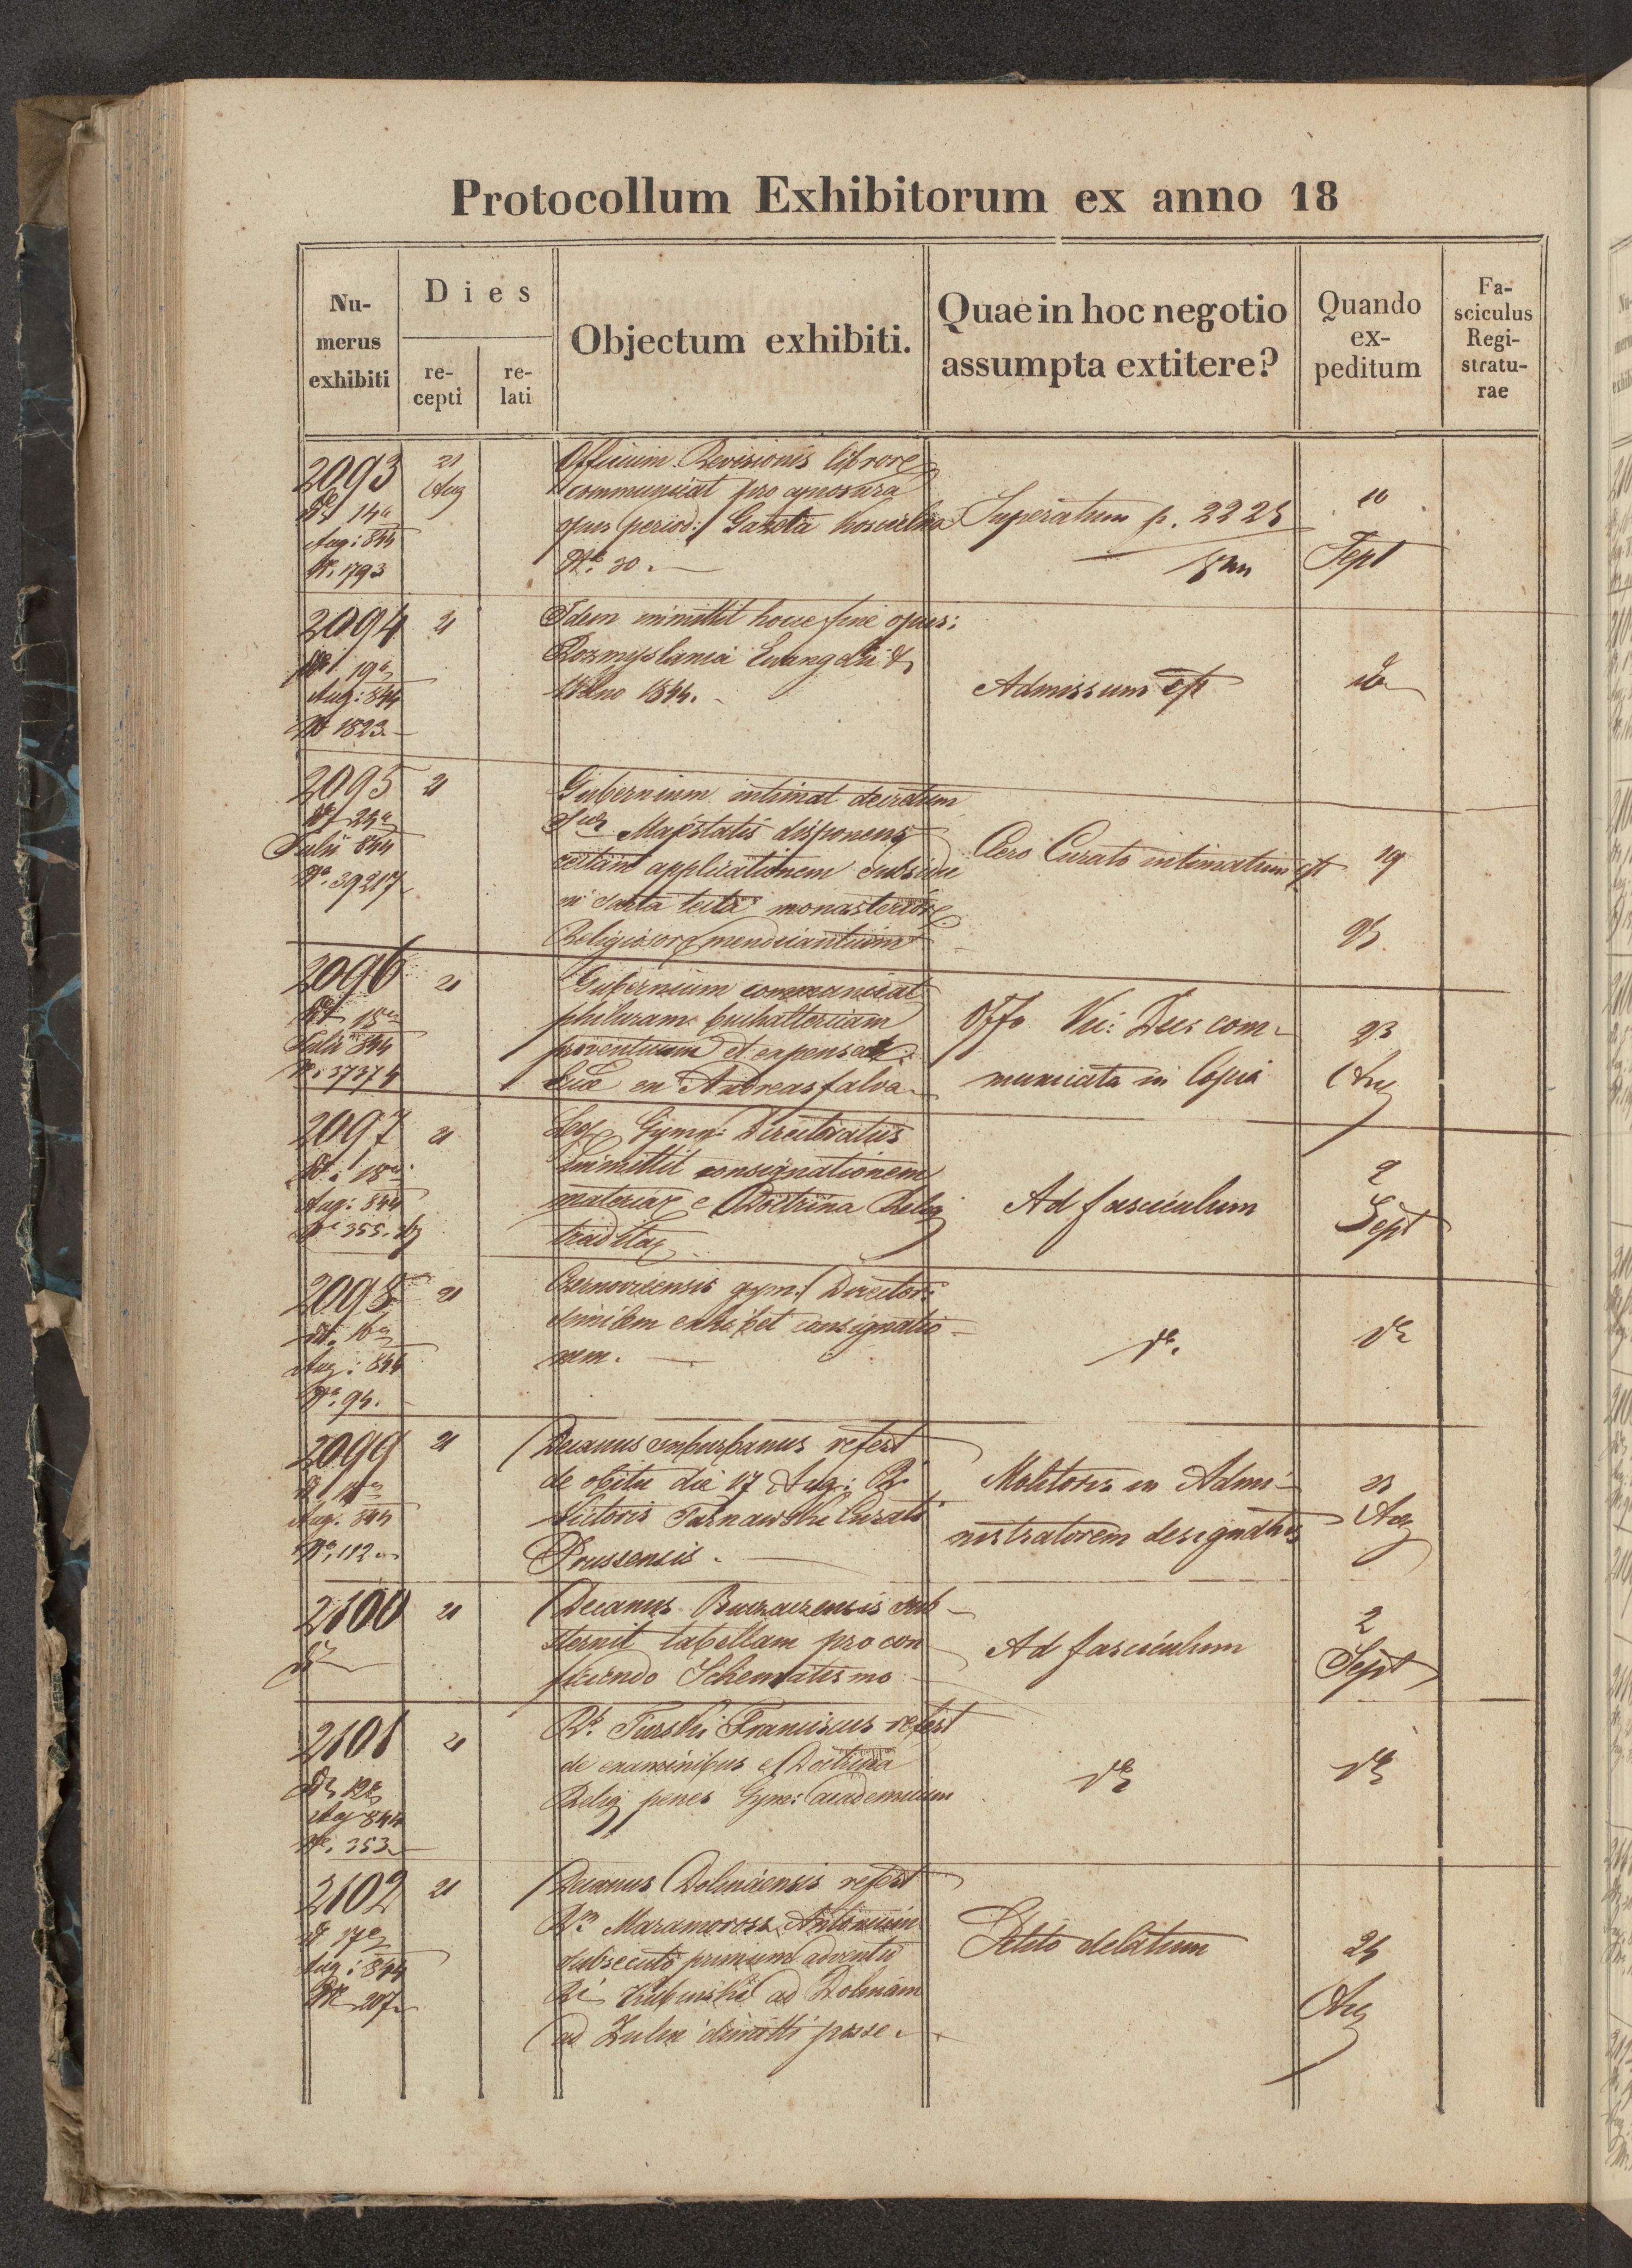 Protocollum Exhibitorum ex anno 18
Nu-
merus
exhibiti
Dies
re-
cepti
re-
lati
Objectum exhibiti.
Quae in hoc negotio
assumpta extitere?
Quando
ex-
peditum
Fa-
sciculus
Regi-
stratu-
rae
2093
14a
Aug: 844
No. 1793
21
Aug
Officium Revisionis libror
communicat pro cynosura
opus period: Gazeta kościelna
No. 30.
Superatum p. 2225
10
Sept
2094
19a
Aug: 844
No 1823.
21
Idem immittit hocce fine opus:
Rozmyslania Ewangelii &
Wilno 1844.
Admissum est
2095
Julii 844
No. 39217
21
Gubernium intimat decretum
Suae Majestatis disponens
certam applicationem subsidii
in sarta tecta monasterior
Religiosor mendicantium
Clero Curato intimatum est
19
2096
15a
Julii 844
No. 37374
21
Gubernium communicat
philuram buchalteriam
proventuum et expensar
in Andreasfalva
Offo Vic: Dec: com-
municata in Copia
23
Aug
2097
Aug: 844
No 355.
21
Gymn: Directoratus
Immittit consignationem
materiar e Doctrina Relig
traditar
Ad fasciculum
2
Sept
2098
16a
Aug: 844
No. 94.
21
Czernoviciensis gym: Director:
similem exhibet consignatio-
nem.
2099
Aug. 844
No. 112
21
Decanus suburbanus refert
de obitu die 17 Aug: R.
Victoris Tarnawski Curati
Prussensis.
Molitoris in Admi-
nistratorem designatus
Aug
2100
21
Decanus Buczaczensis sub-
sternit tabellam pro con-
ficiendo Schematismo
Ad fasciculum
2
Sept
2101
Aug 844
No. 353
21
R. Turski Franciscus refert
de examinibus e Doctrina
Relig penes Gymn: academicum
2102
17a
Aug: 844
No 207
21
Decanus Dolinensis refert
Rm Maramorosz Antonium
subsecuto primum adventu
Ri ad Dolinam
ad dimitti posse.
Petito delatum
24
Aug